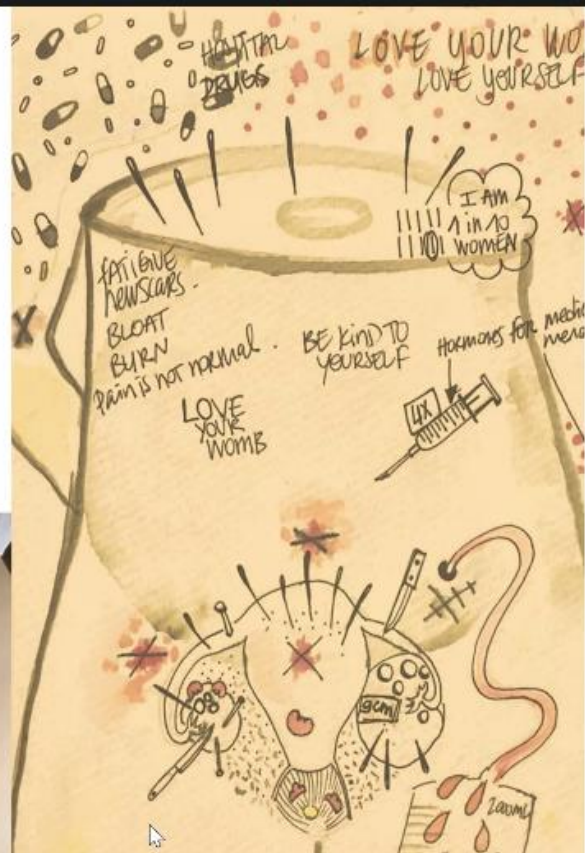 HOSPITAL
DRUGS
LOVE YOUR WO
LOVE YOURSELF
I AM
1 in 10
WOMEN
FATIGUE
NEW SCARS.
BLOAT
BURN
Pain is not normal.
BE KIND TO
YOURSELF
HORMONES for medic
meno
LOVE
YOUR
WOMB
4X
9cm
2000mL